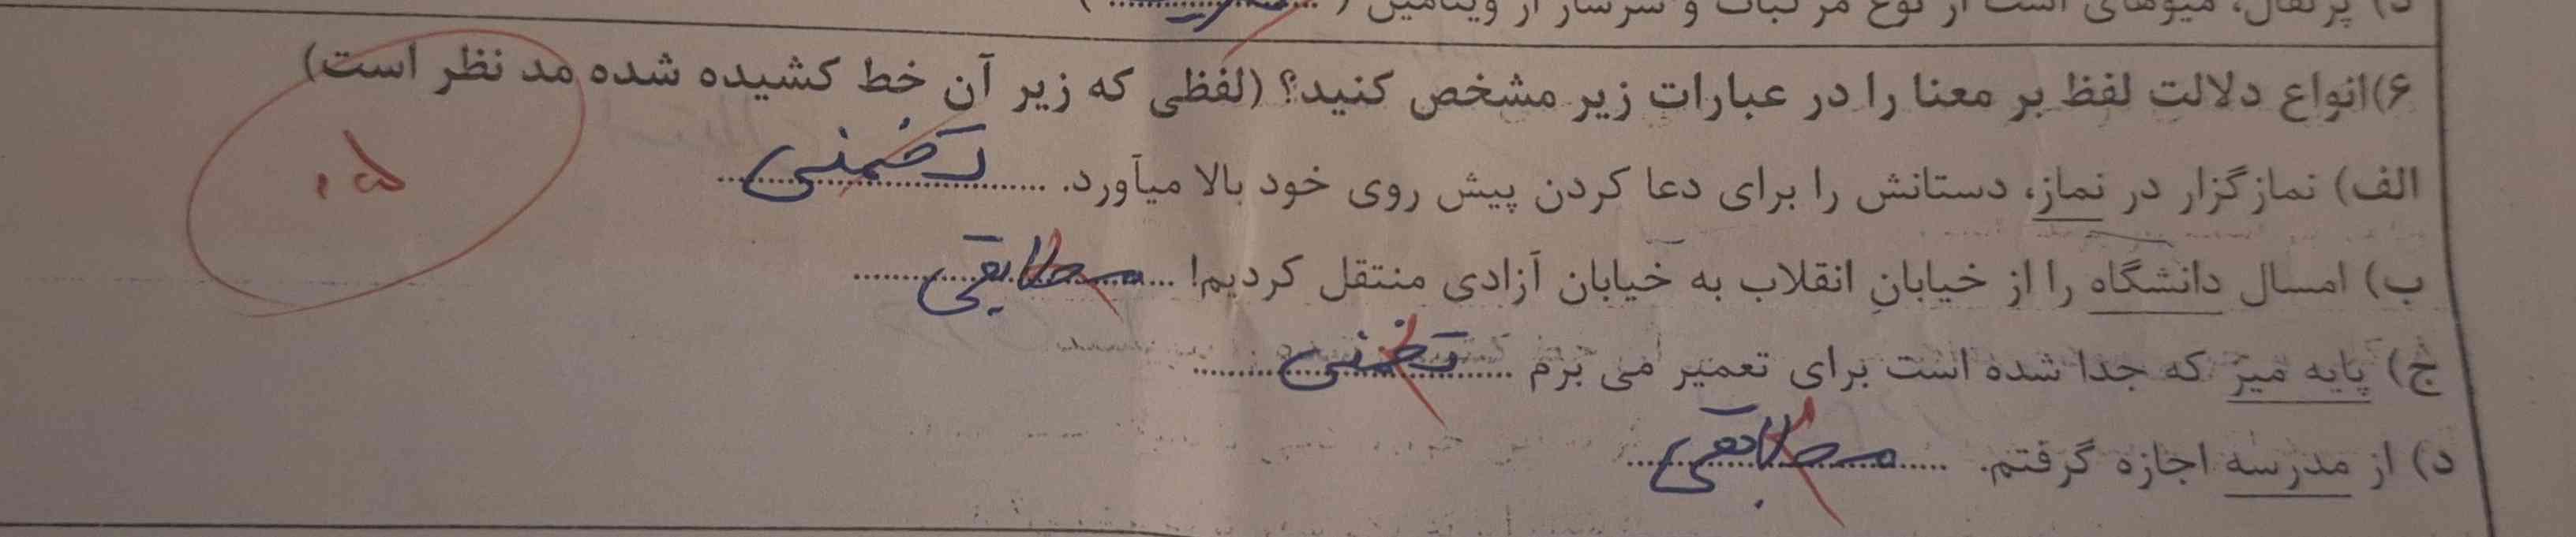 د) پرتقال، میوه‌ای است از نوع مرکبات و سرشار از ویتامین (..........)
۶)انواع دلالت لفظ بر معنا را در عبارات زیر مشخص کنید؟ (لفظی که زیر آن خط کشیده شده مد نظر است)
الف) نمازگزار در نماز، دستانش را برای دعا کردن پیش روی خود بالا میآورد. تضمنی
ب) امسال دانشگاه را از خیابانِ انقلاب به خیابان آزادی منتقل کردیم! مطابقی
ج) پایه میز که جدا شده است برای تعمیر می برم تضمنی
د) از مدرسه اجازه گرفتم. مطابقی
۰٫۵